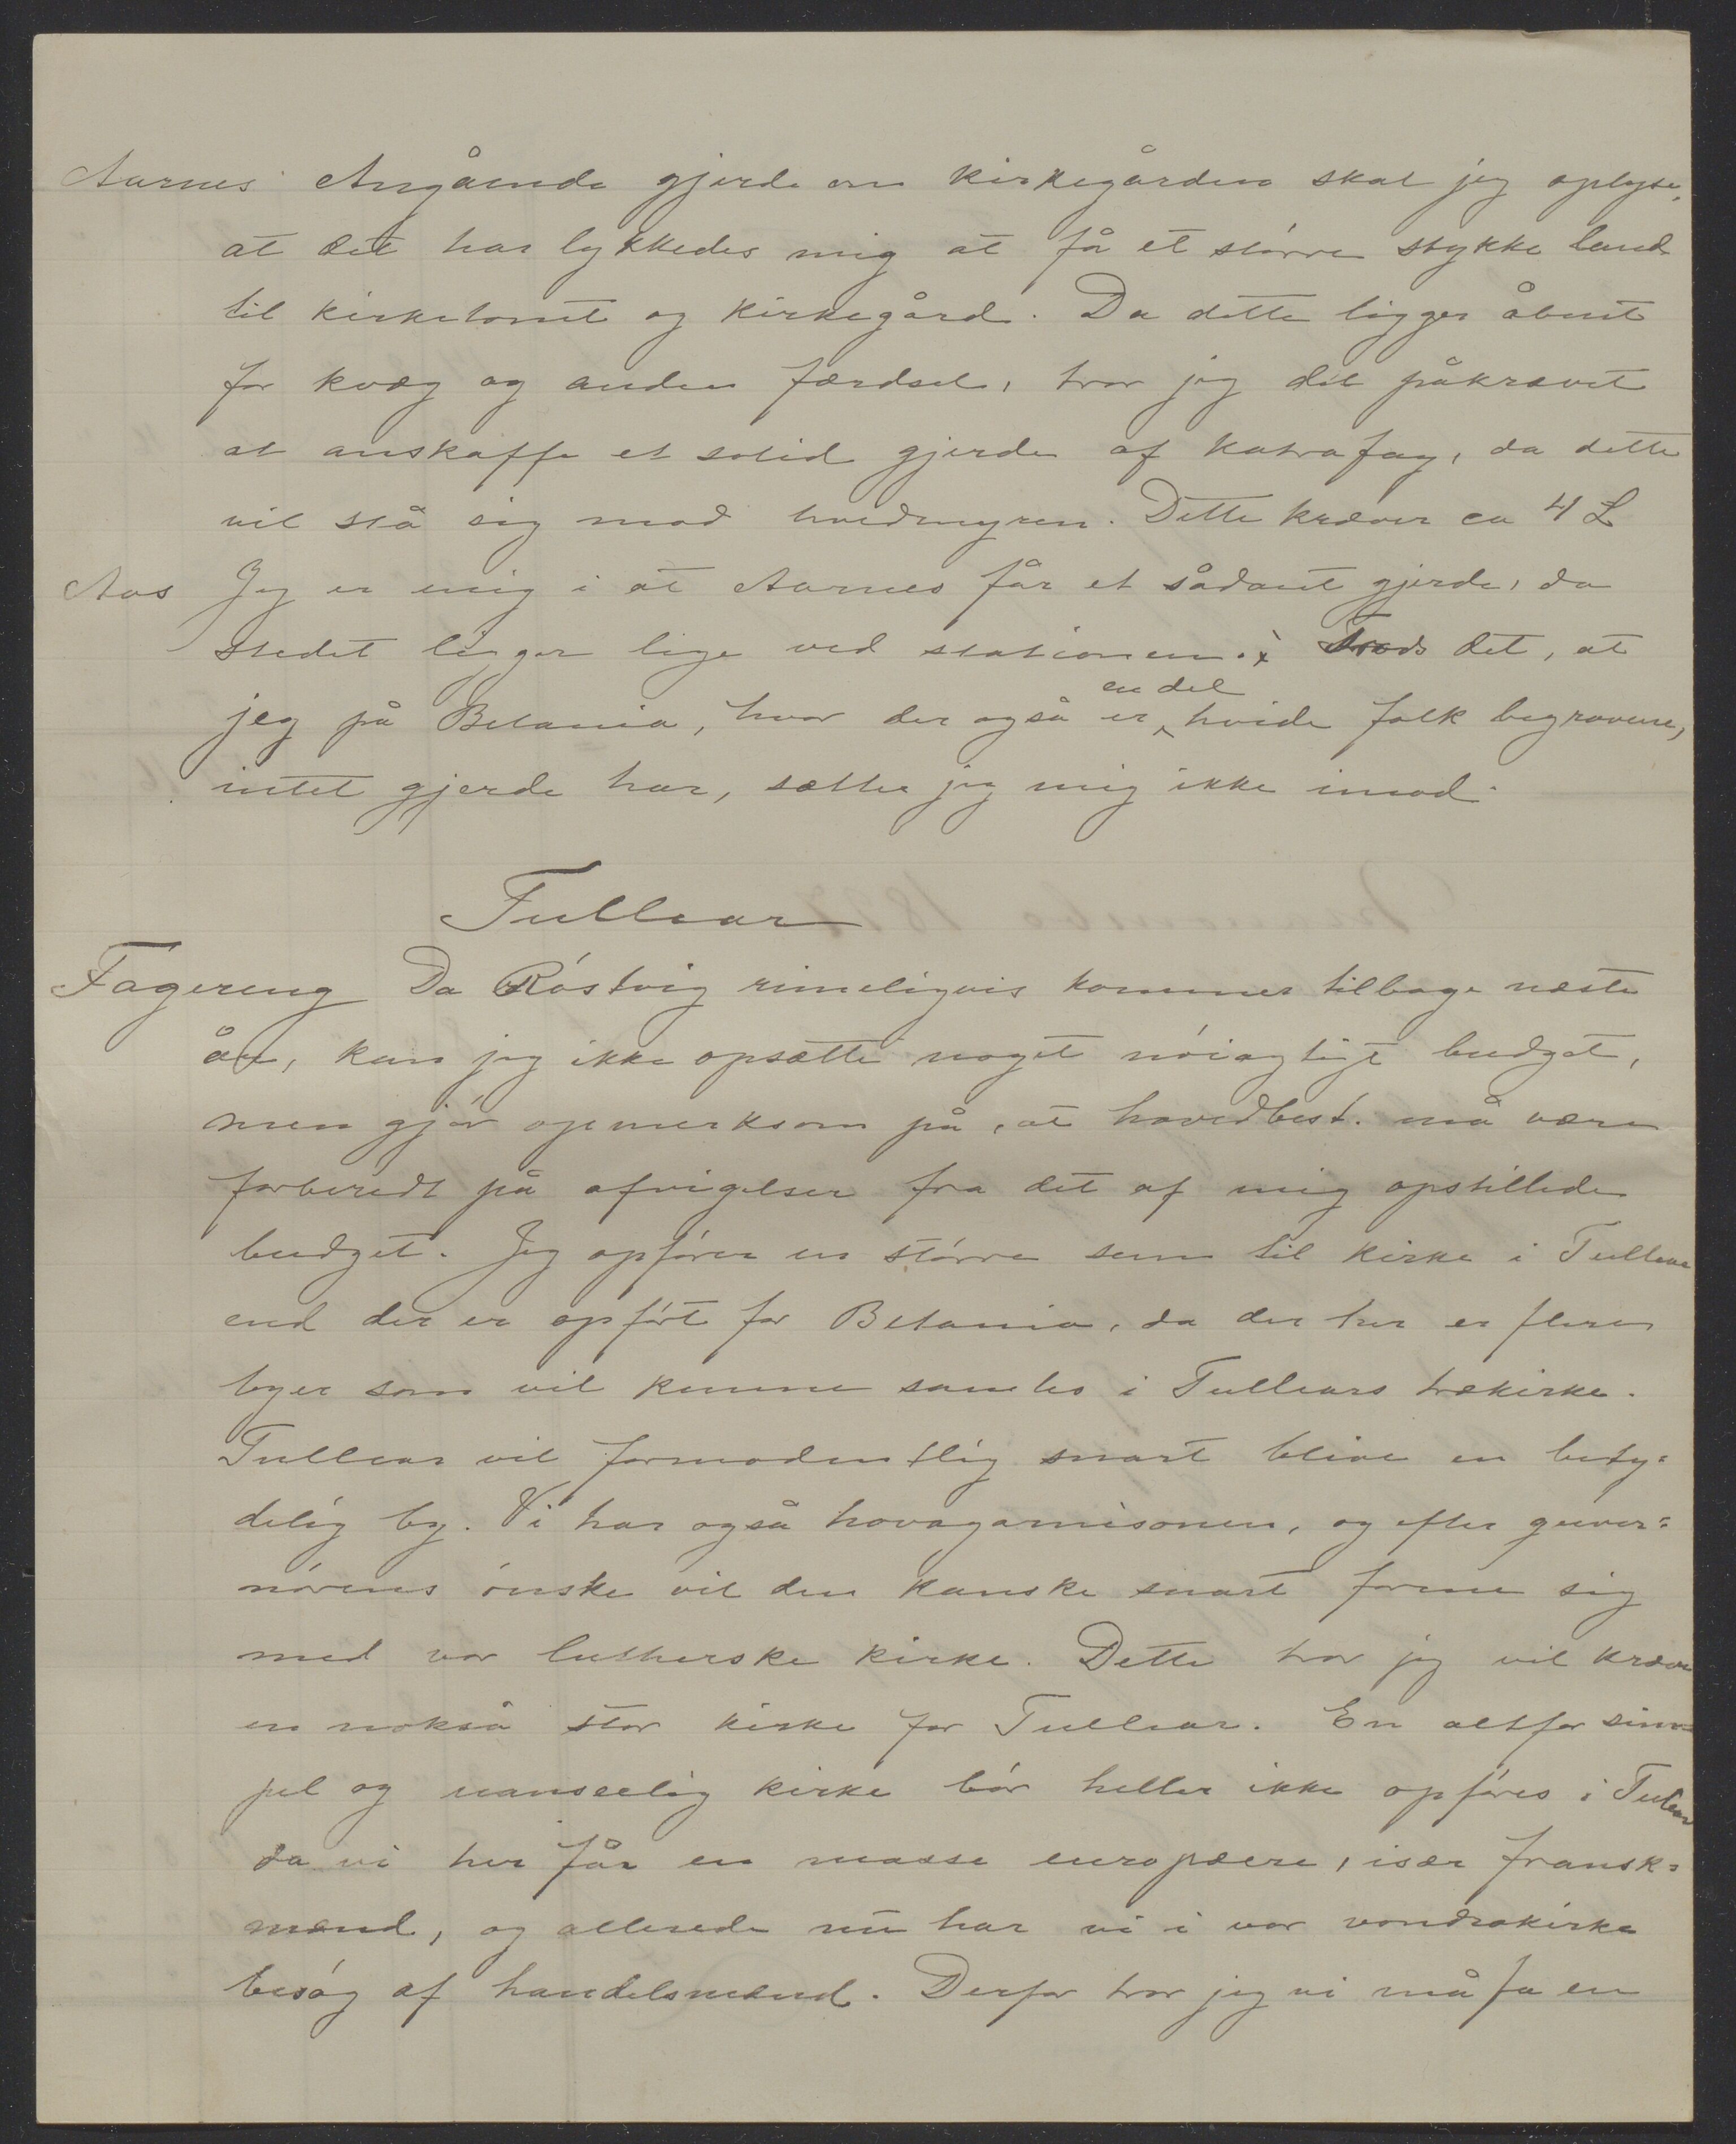 Aarnes Angående gjerde om kirkegården skal jeg oplyse,
at det har lykkedes mig at få et større stykke land
til kirketomt og kirkegård. Da dette ligger åbent
for kvæg og anden færdsel, tror jeg det påkrævet
at anskaffe et solid gjerde af katrafay, da dette
vil stå sig mod hvidmyren. Dette kræver ca 4 £
Aas Jeg er enig i at Aarnes får et sådant gjerde, da
stedet ligger lige ved stationen. Trods det, at
jeg på Betania, hvor der også er en del hvide folk begravene,
intet gjerde har, sætter jeg mig ikke imod.
Tullear
Fagereng Da Röstvig rimeligvis kommer tilbage næste
år, kan jeg ikke opsætte noget nöiagtigt budget,
men gjör opmerksom på, at hovedbest. må være
forberedt på afvigelser fra det af mig opstillede
budget. Jeg opförer en större sum til kirke i Tullear
end der er opfört for Betania, da der her er flere
byer som vil kunne samles i Tullears trækirke.
Tullear vil formodentlig snart blive en bety=
delig by. Vi har også hovagarnisonen, og efter guver=
nörens önske vil den kanske snart forene sig
med vor lutherske kirke. Dette tror jeg vil kræve
en nokså stor kirke for Tullear. En altfor sim=
pel og uanseelig kirke bör heller ikke opföres i Tulear
da vi her får en masse europæere, især fransk=
mænd, og allerede nu har vi i vor vondrokirke
besög af handelsmænd. Derfor tror jeg vi må fa en